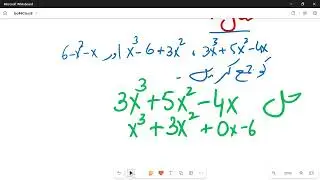 Microsoft Whiteboard
3x³+5x²-4x , x³-6+3x² اور 6-x²-x
کو جمع کریں۔
حل 3x³+5x²-4x
x³+3x²+0x-6